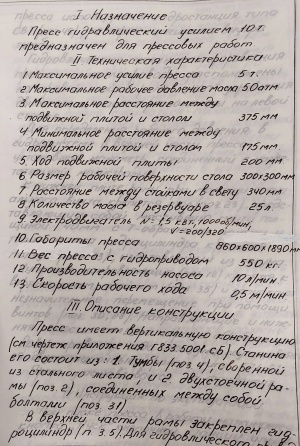 I Назначение
Пресс гидравлический усилием 10 т.
предназначен для прессовых работ
II Техническая характеристика
1 Максимальное усилие пресса 5 т.
2 Максимальное рабочее давление масла 50 атм
3. Максимальное расстояние между
подвижной плитой и столом 375 мм
4 Минимальное расстояние между
подвижной плитой и столом 175 мм
5. Ход подвижной плиты 200 мм.
6 Размер рабочей поверхности стола 300х300 мм
7 Расстояние между стойками в свету 340 мм
8 Количество масла в резервуаре 25 л.
9. Электродвигатель N=1,5 квт, 1000 об/мин,
V=200/320
10. Габариты пресса 860х600х1890 мм
11. Вес пресса с гидроприводом 550 кг.
12. Производительность насоса 10 л/мин
13. Скорость рабочего хода 0,5 м/мин
III. Описание конструкции
Пресс имеет вертикальную конструкцию
(см чертеж приложения Г833.5001.СБ). Станина
его состоит из: 1. Тумбы (поз. 4), сваренной
из стального листа, и 2. двухстоечной ра-
мы (поз. 2), соединенных между собой
болтами (поз. 31)
В верхней части рамы закреплен гид-
роцилиндр (п. 3.5). Для гидровлического